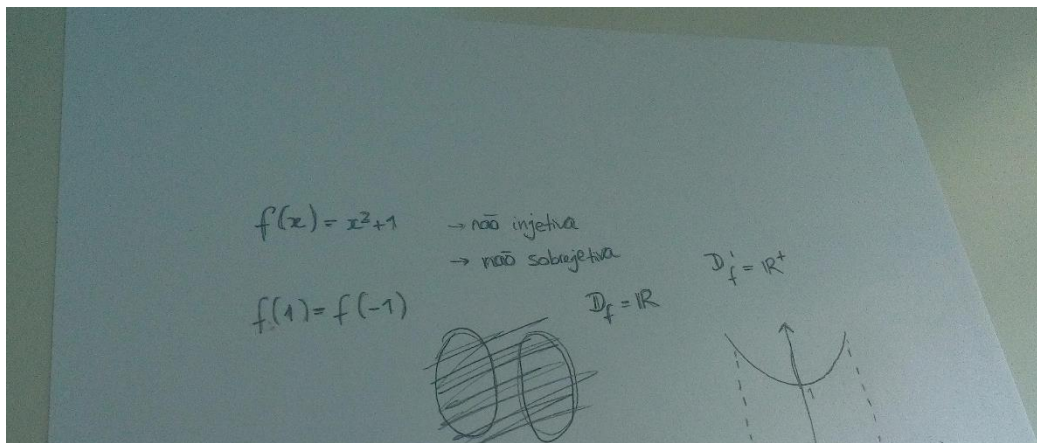 f(x) = x²+1 → não injetiva
→ não sobrejetiva
D'f = ℝ⁺
f(1) = f(-1)
Df = ℝ
1